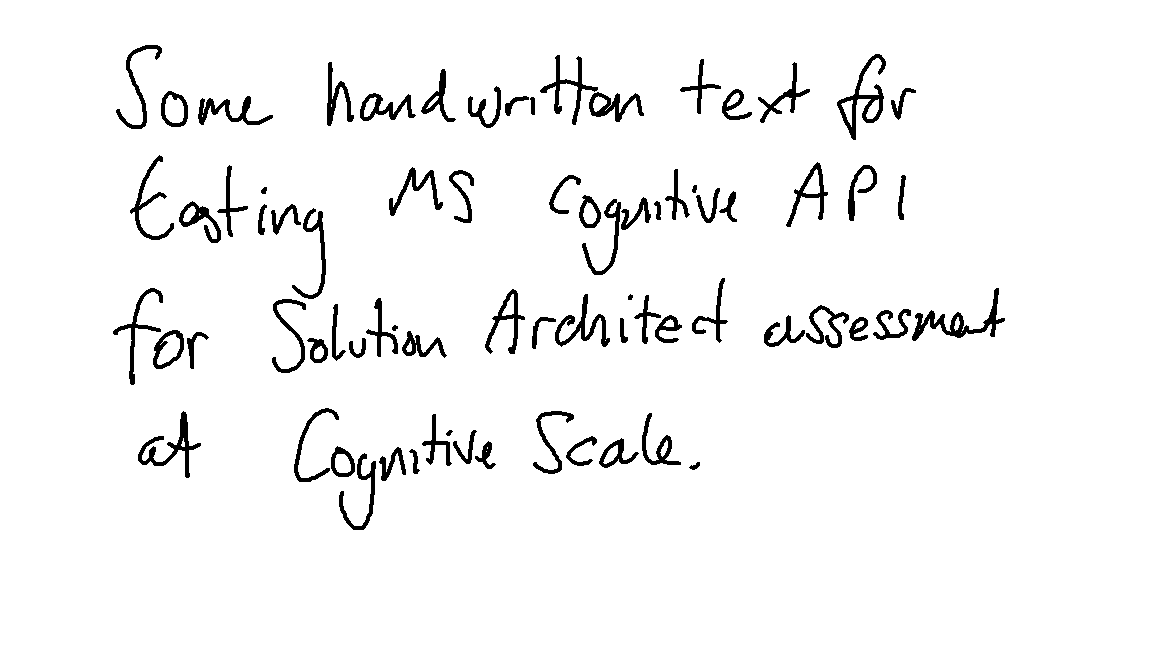 Some handwritten text for
testing MS Cognitive API
for Solution Architect assessment
at Cognitive Scale.